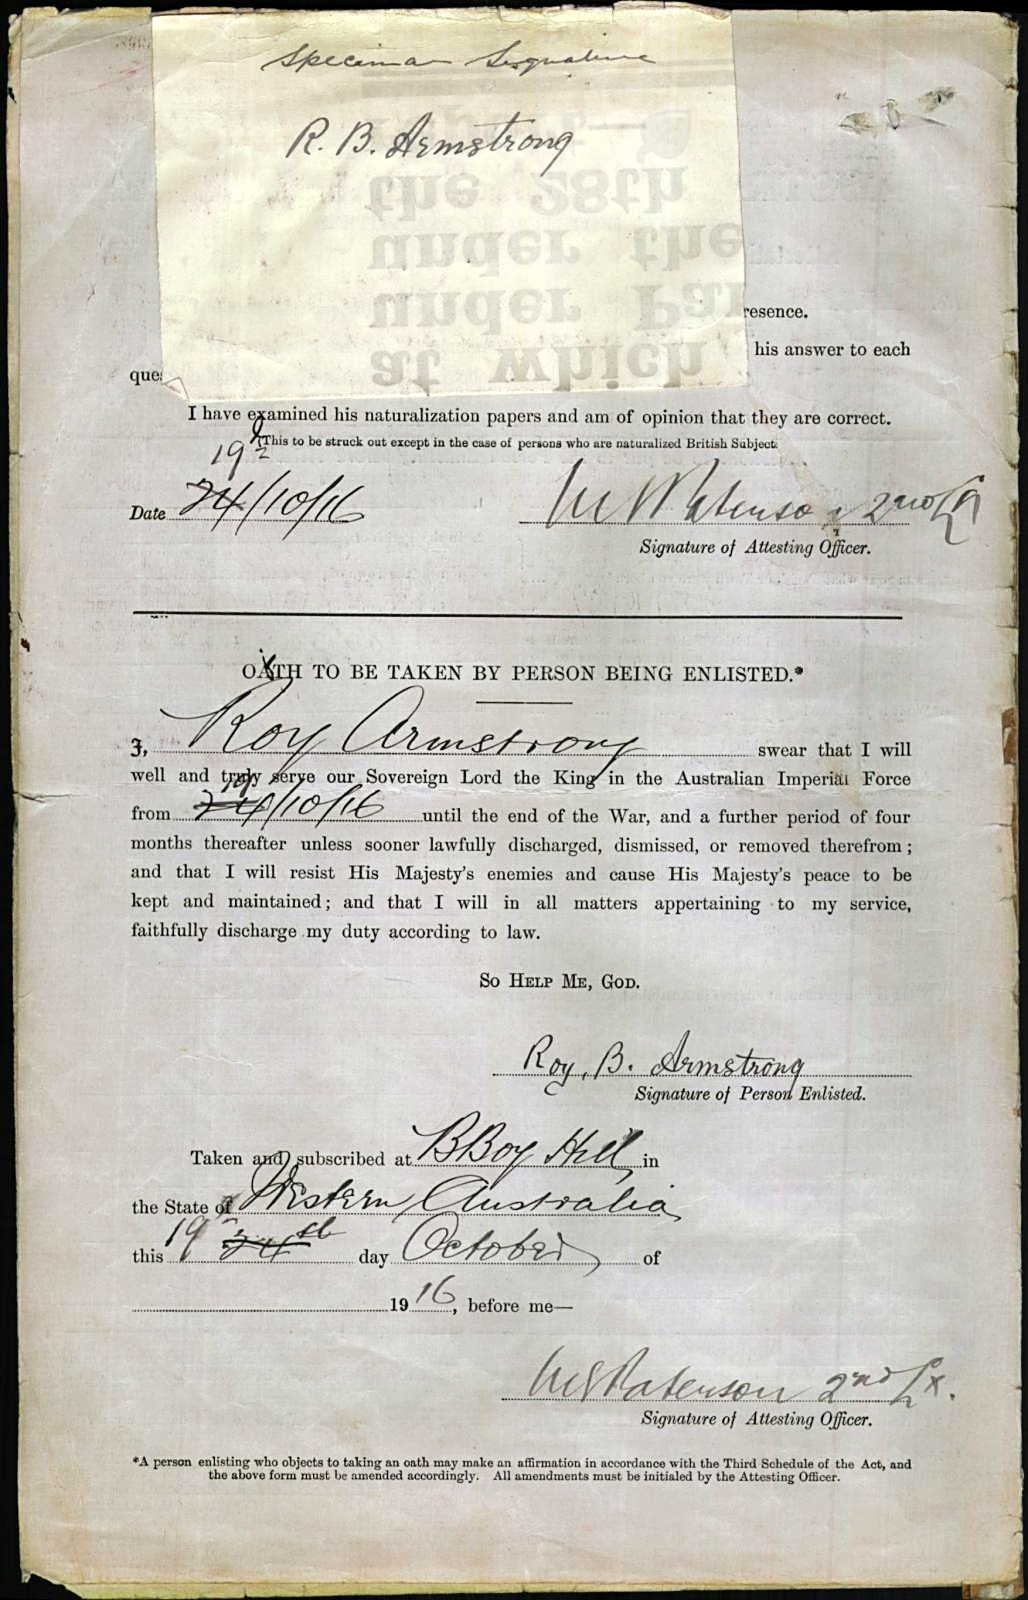 Specimen Signature
R. B. Armstrong
the 28th
under the
under Par
at which
resence.
his answer to each
ques
I have examined his naturalization papers and am of opinion that they are correct.
(This to be struck out except in the case of persons who are naturalized British Subject
19
Date 24/10/16 Paterson 2nd Lt
Signature of Attesting Officer.
OATH TO BE TAKEN BY PERSON BEING ENLISTED.*
I, Roy Armstrong swear that I will
well and truly serve our Sovereign Lord the King in the Australian Imperial Force
19
from 24/10/16 until the end of the War, and a further period of four
months thereafter unless sooner lawfully discharged, dismissed, or removed therefrom;
and that I will resist His Majesty's enemies and cause His Majesty's peace to be
kept and maintained; and that I will in all matters appertaining to my service,
faithfully discharge my duty according to law.
So Help Me, God.
Roy. B. Armstrong
Signature of Person Enlisted.
Taken and subscribed at BBoy Hill in
the State of Western Australia
this 19 24th day October of
1916, before me—
Paterson 2nd Lt.
Signature of Attesting Officer.
*A person enlisting who objects to taking an oath may make an affirmation in accordance with the Third Schedule of the Act, and
the above form must be amended accordingly. All amendments must be initialed by the Attesting Officer.